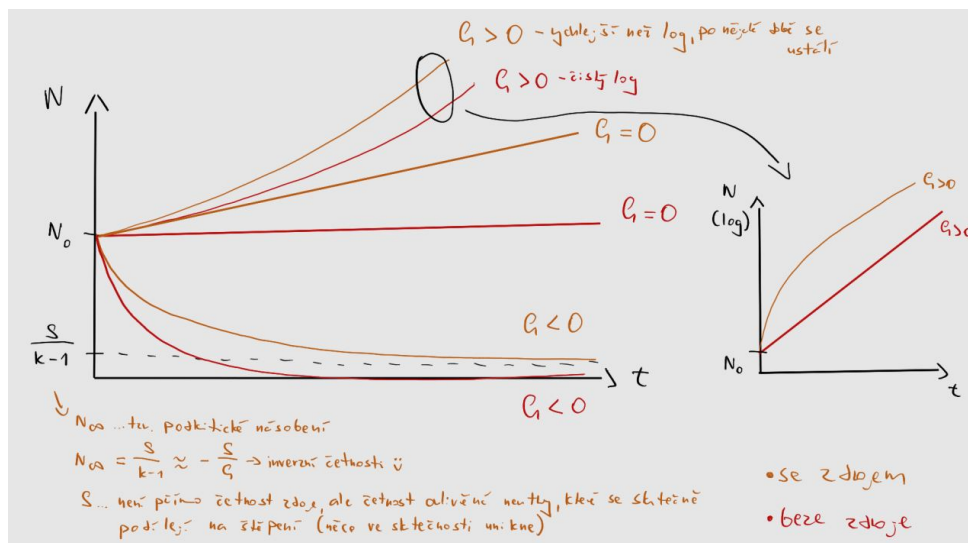 ϱ > 0 - rychlejší než log, po nějaké době se
ustálí
ϱ > 0 - čistý log
N
ϱ = 0
N₀
ϱ = 0
S
k-1
ϱ < 0
t
ϱ < 0
N
(log)
ϱ > 0
ϱ > 0
N₀
t
N∞ ... tzv. podkritické násobení
N∞ = S/k-1 ≈ - S/ϱ → inverzní četnosti ü
S... není přímo četnost zdroje, ale četnost neutrony, které se skutečně
podílejí na štěpení (něco ve skutečnosti unikne)
• se zdrojem
• beze zdroje